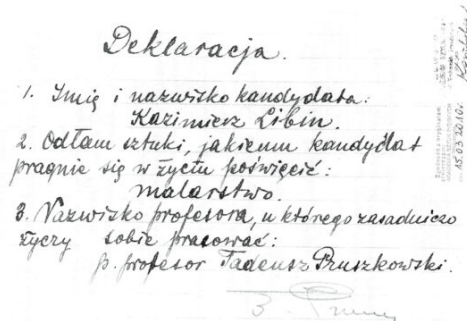 Deklaracja.
1. Imię i nazwisko kandydata:
Kazimierz Libin.
2. Odłam sztuki, jakiemu kandydat
pragnie się w życiu poświęcić:
malarstwo.
3. Nazwisko profesora, u którego zasadniczo
życzy sobie pracować:
p. profesor Tadeusz Pruszkowski.
15.03.2010